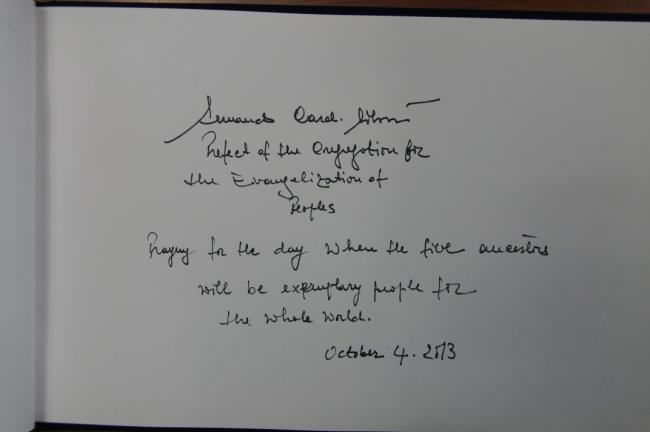 Fernando Card. Filoni
Prefect of the Congregation for
the Evangelization of
Peoples
Praying for the day when the five ancestors
will be exemplary people for
the whole world.
October 4. 2013